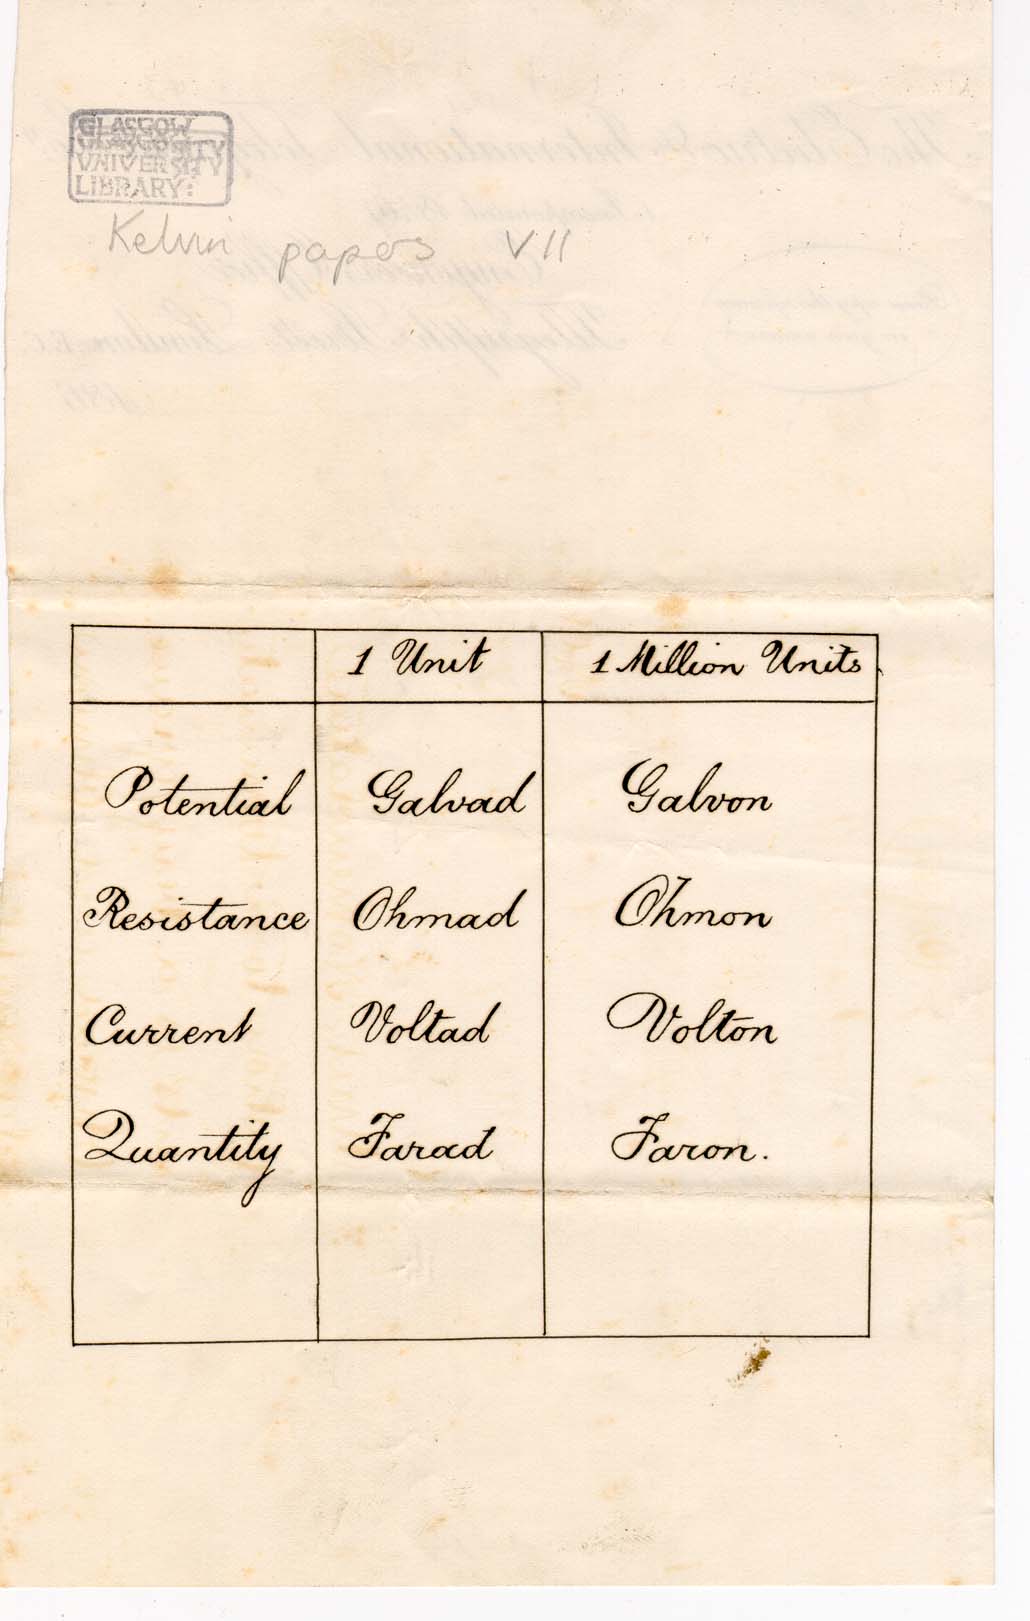 GLASGOW
UNIVERSITY
LIBRARY:
Kelvin papers VII
1 Unit 1 Million Units
Potential Galvad Galvon
Resistance Ohmad Ohmon
Current Voltad Volton
Quantity Farad Faron.